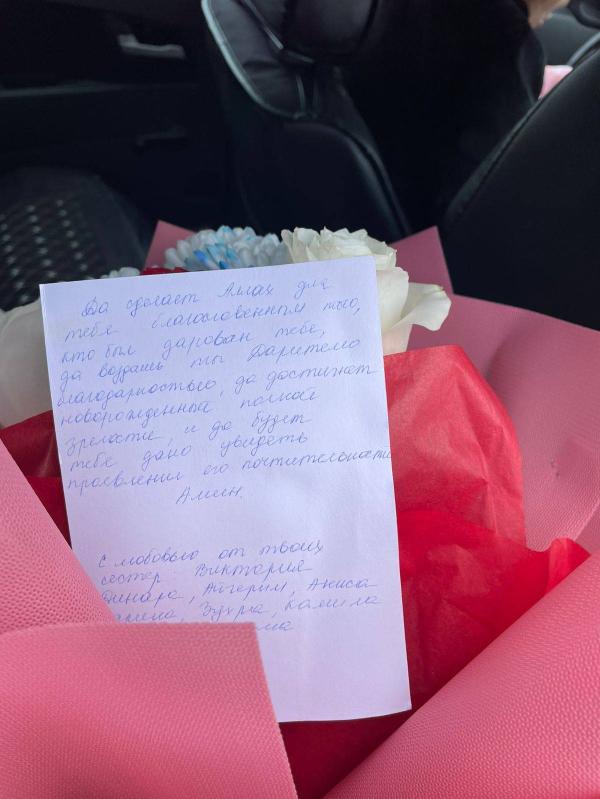 Да сделает Аллах для
тебя благословенным того,
кто был дарован тебе,
да воздашь ты Дарителю
благодарностью, да достигнет
новорожденный полной
зрелости, и да будет
тебе дано увидеть
проявления его почтительности
Амин.
С любовью от твоих
сестер Виктория
Динара, Айгерим, Аниса
Зухра, Камила